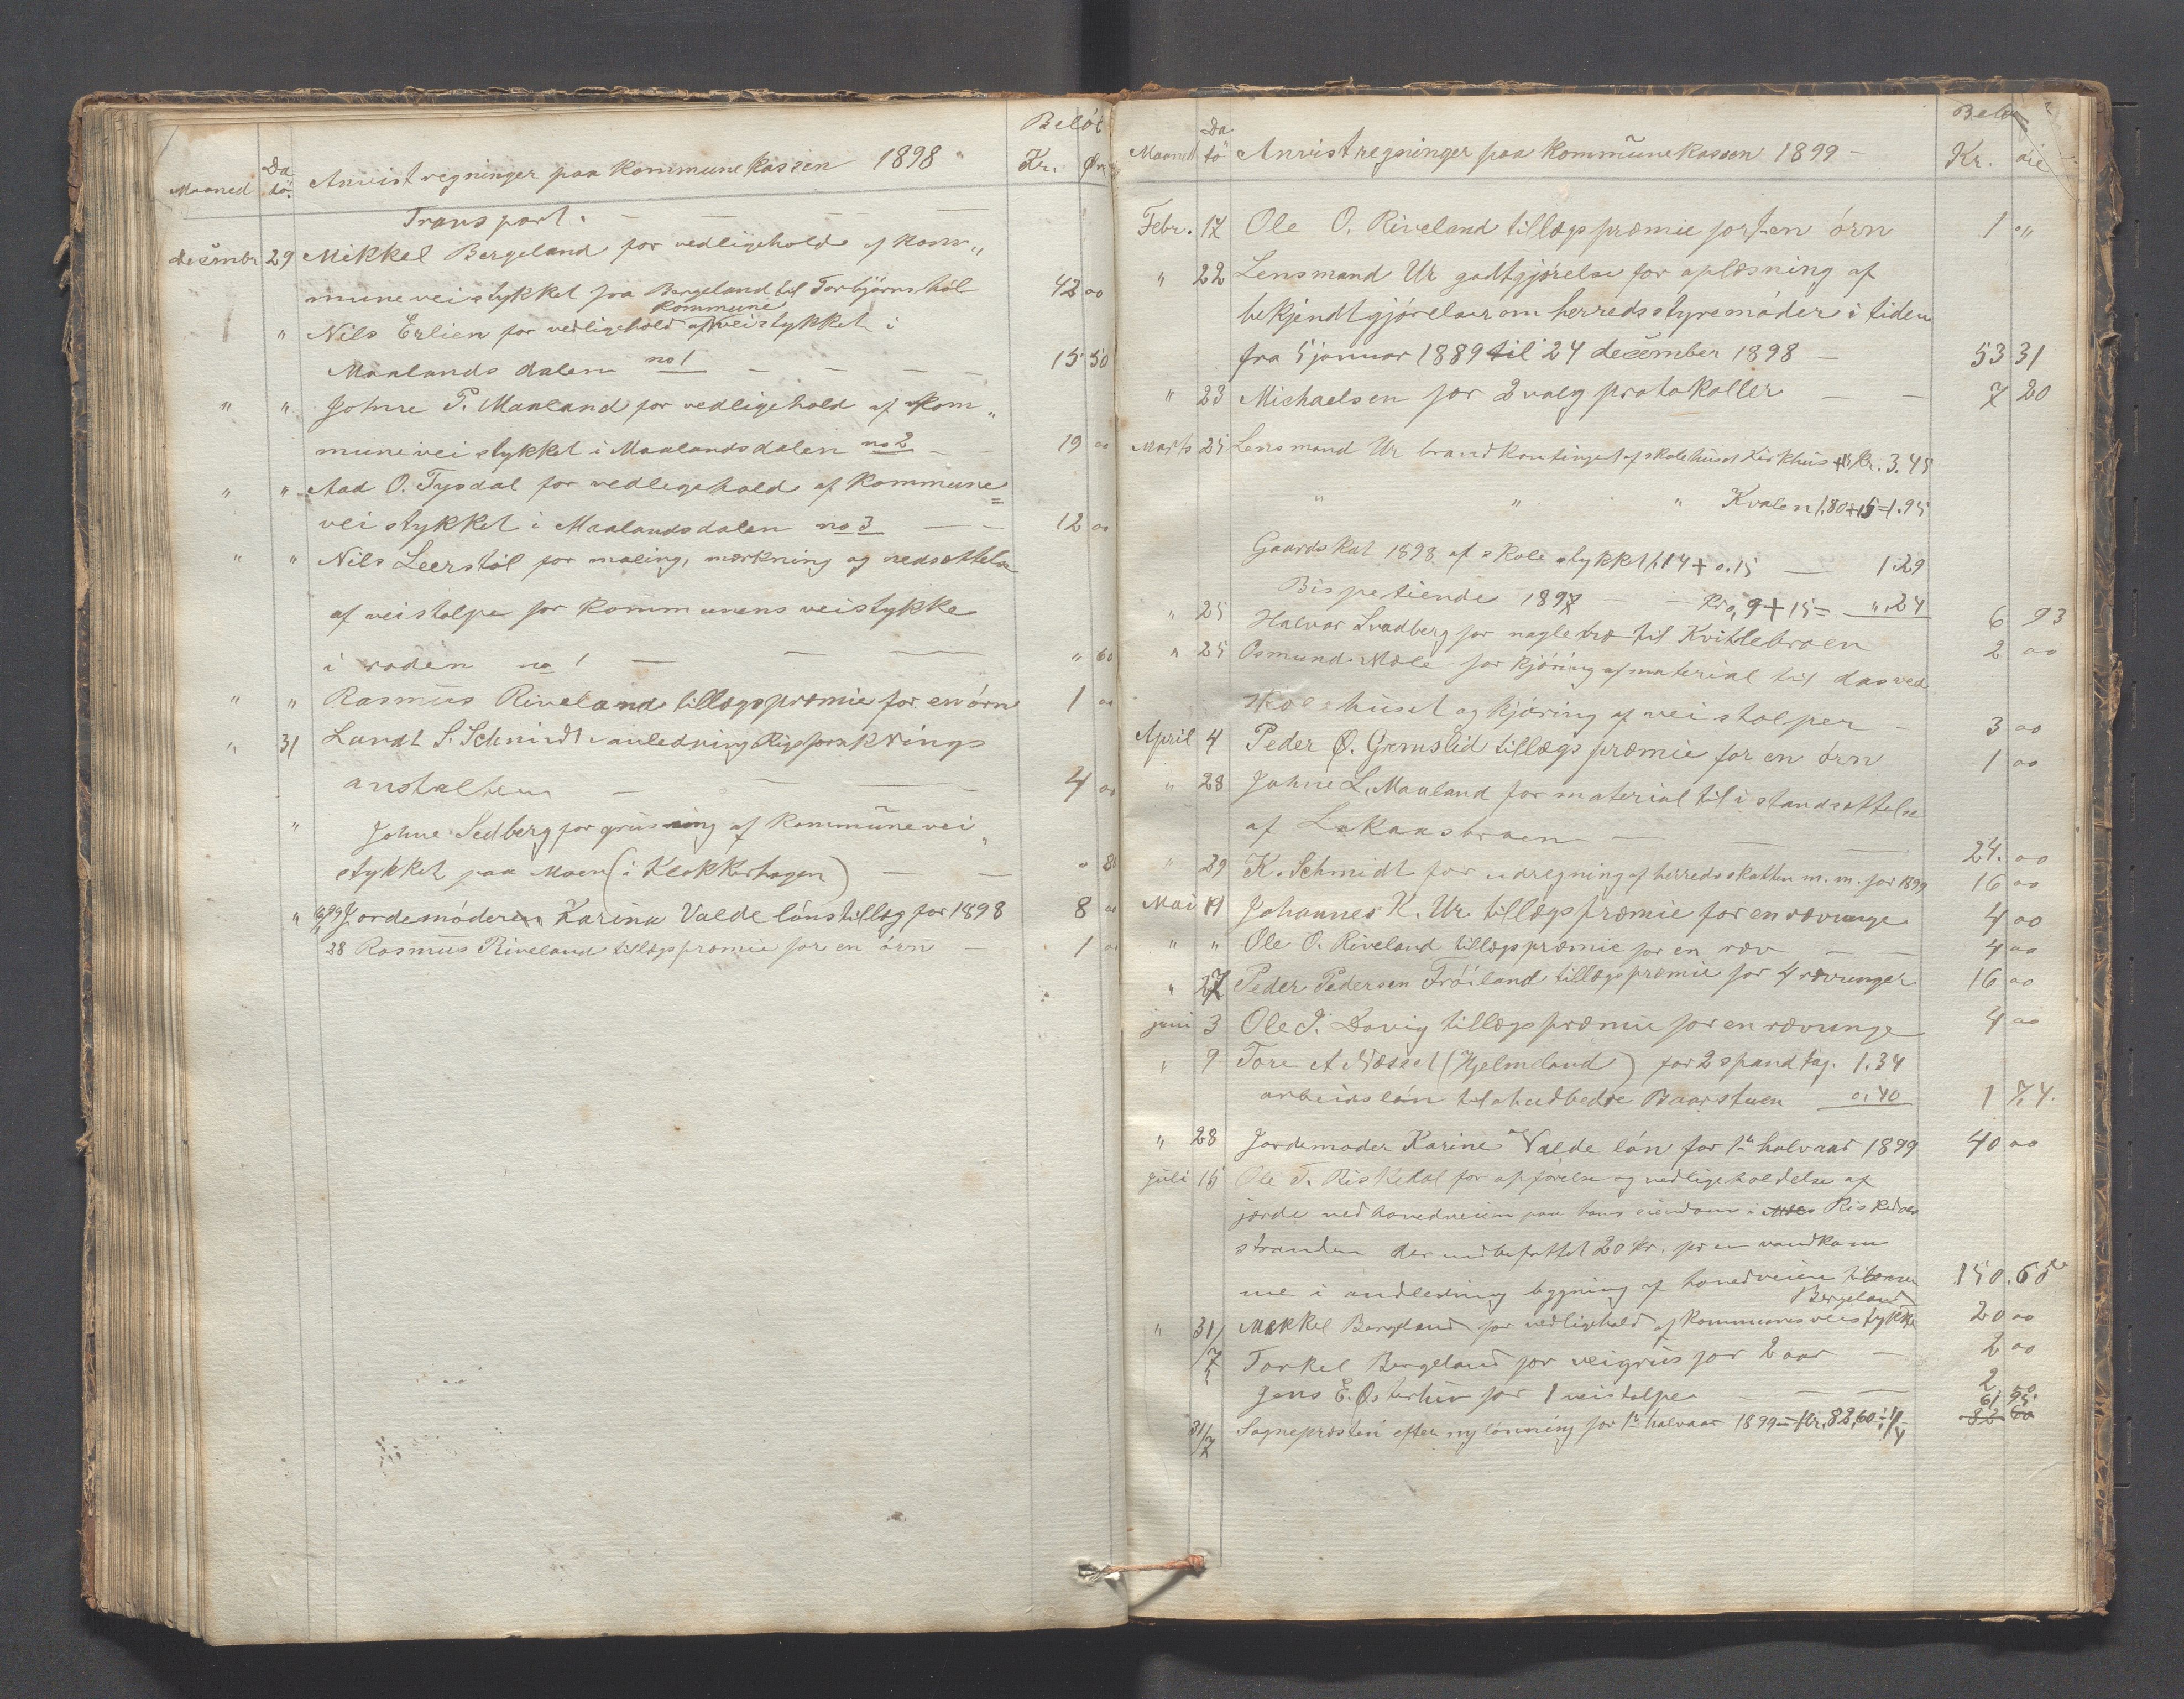 Beløb
Maaned Dato Anvist regninger paa Kommunekassen 1898 Kr. Øre
Transport.
Desember 29 Mikkel Bergeland for vedligehold af kom„
muneveistykket fra Bergeland til Torbjørnshol 42 00
" Nils Erlien for vedligehold af kommune veistykket i
Maalandsdalen no 1 15 50
" " Johne P. Maaland for vedligehold af kom„
muneveistykket i Maalandsdalen no 2 19 00
" " Aad O. Tysdal for vedligehold af kommune=
veistykket i Maalandsdalen no 3 12 00
" " Nils Leerstøl for maling, mærkning og nedsættelse
af veistolpe for kommunens veistykke
i roden no 1 " 60
" " Rasmus Riveland tillægspræmie for en ørn 1 00
" 31 Landt S. Schmidt i anledning Rigsforsikrings
anstalten 4 00
" Johne Sedberg for grusning af kommunevei„
stykket paa Moen (i Klokkerhagen) 0 80
" Jordemøderen Karina Valde lønstillæg for 1898 8 00
28 Rasmus Riveland tillægspræmie for en ørn 1 00
Beløb
Maaned Dato Anvist regninger paa Kommunekassen 1899 Kr. øre
Febr. 17 Ole O. Riveland tillægspræmie for en ørn 1 "
" 22 Lensmand Ur godtgjørelse for oplæsning af
bekjendtgjørelser om herredsstyremøder i tiden
fra 5 januar 1889 til 24 desember 1898 53 31
" 23 Michaelsen for 2 valgprotokoller 7 20
Marts 25 Lensmand Ur brandkontingent af skolehuset Kirkhus + 15 Kr. 3.45
" " " Kvalen 1.80 + 15 = 1.95
Gaardskat 1898 af skolestykket 1.14 + 0.15 1.29
Bispetiende 1897 Kr 0,9 + 15 = ",24
" 25 6 93
Halvor Svadberg for nagletræ til Kvitlebroen 2 00
" 25 Osmund Mæle for kjøring af material til das ved
skolehuset og kjøring af veistolper 3 00
April 4 Peder Ø. Grimslid tillægspræmie for en ørn 1 00
" 28 Johne L. Maaland for material til istandsættelse
af Lakaasbroen 24. 00
" 29 K. Schmidt for udregning af herredsskatten m.m. for 1899 16 00
Mai 19 Johannes K. Ur tillægspræmie for en rævunge 4 00
" " Ole O. Riveland tillægspræmie for en ræv 4 00
" 27 Peder Pedersen Frøiland tillægspræmie for 4 rævunger 16 00
juni 3 Ole P. Døvig tillægspræmie for en rævunge 4 00
" 9 Tore A Næsset (Hjelmeland) for 2 spand tag. 1.34
arbeidsløn til at udbedre Baarstuen 0.40 1 74.
" 28 Jordemoder Karine Valde løn for 1ste halvaar 1899 40 00
juli 15 Ole T. Riskedal for opførelse og vedligeholdelse af
jærde ved hovedveien paa hans eiendom i Riskedal
stranden der indbefattet 20 Kr. for en vandkom
me i andledning bygning af hovedveien 150.60
Bergeland
" 31/7 Mikkel Bergeland for vedligehold af kommunens veistykke 20 00
Torkel Bergeland for veigrus for 2 aar 2 00
Jens E. Østerhus for 1 veistolpe 2
61 95
31/7 Sognepræsten efter ny lønning for 1ste halvaar 1899 = Kr. 82,60 ÷ 1/4 82 60